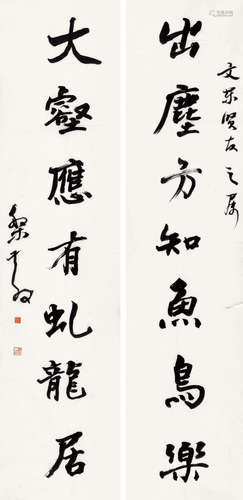 文荣贤友之属
出塵方知魚鳥樂
大壑應有虬龍居